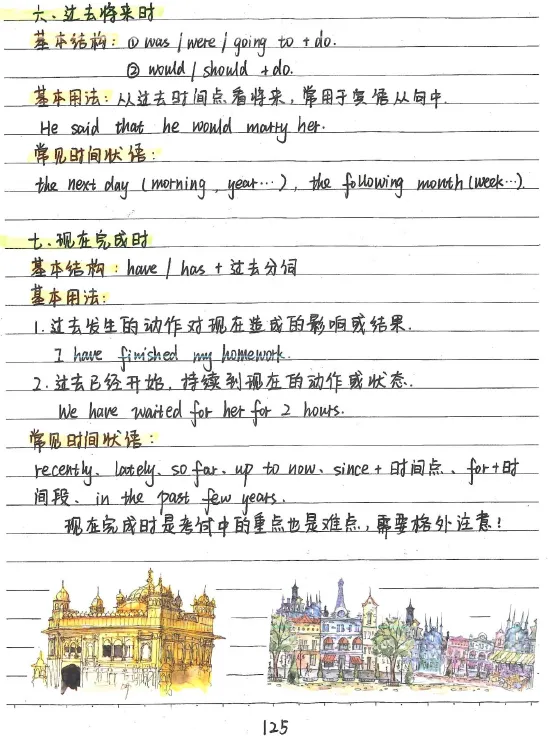 六、过去将来时
基本结构：① was / were / going to + do.
② would / should + do.
基本用法：从过去时间点看将来，常用于复语从句中.
He said that he would marry her.
常见时间状语：
the next day (morning, year…), the following month (week…).
七、现在完成时
基本结构：have / has + 过去分词
基本用法：
1. 过去发生的动作对现在造成的影响或结果.
I have finished my homework.
2. 过去已经开始，持续到现在的动作或状态.
We have waited for her for 2 hours.
常见时间状语：
recently、lately、so far、up to now、since + 时间点、for + 时
间段、in the past few years.
现在完成时是考试中的重点也是难点，需要格外注意！
125